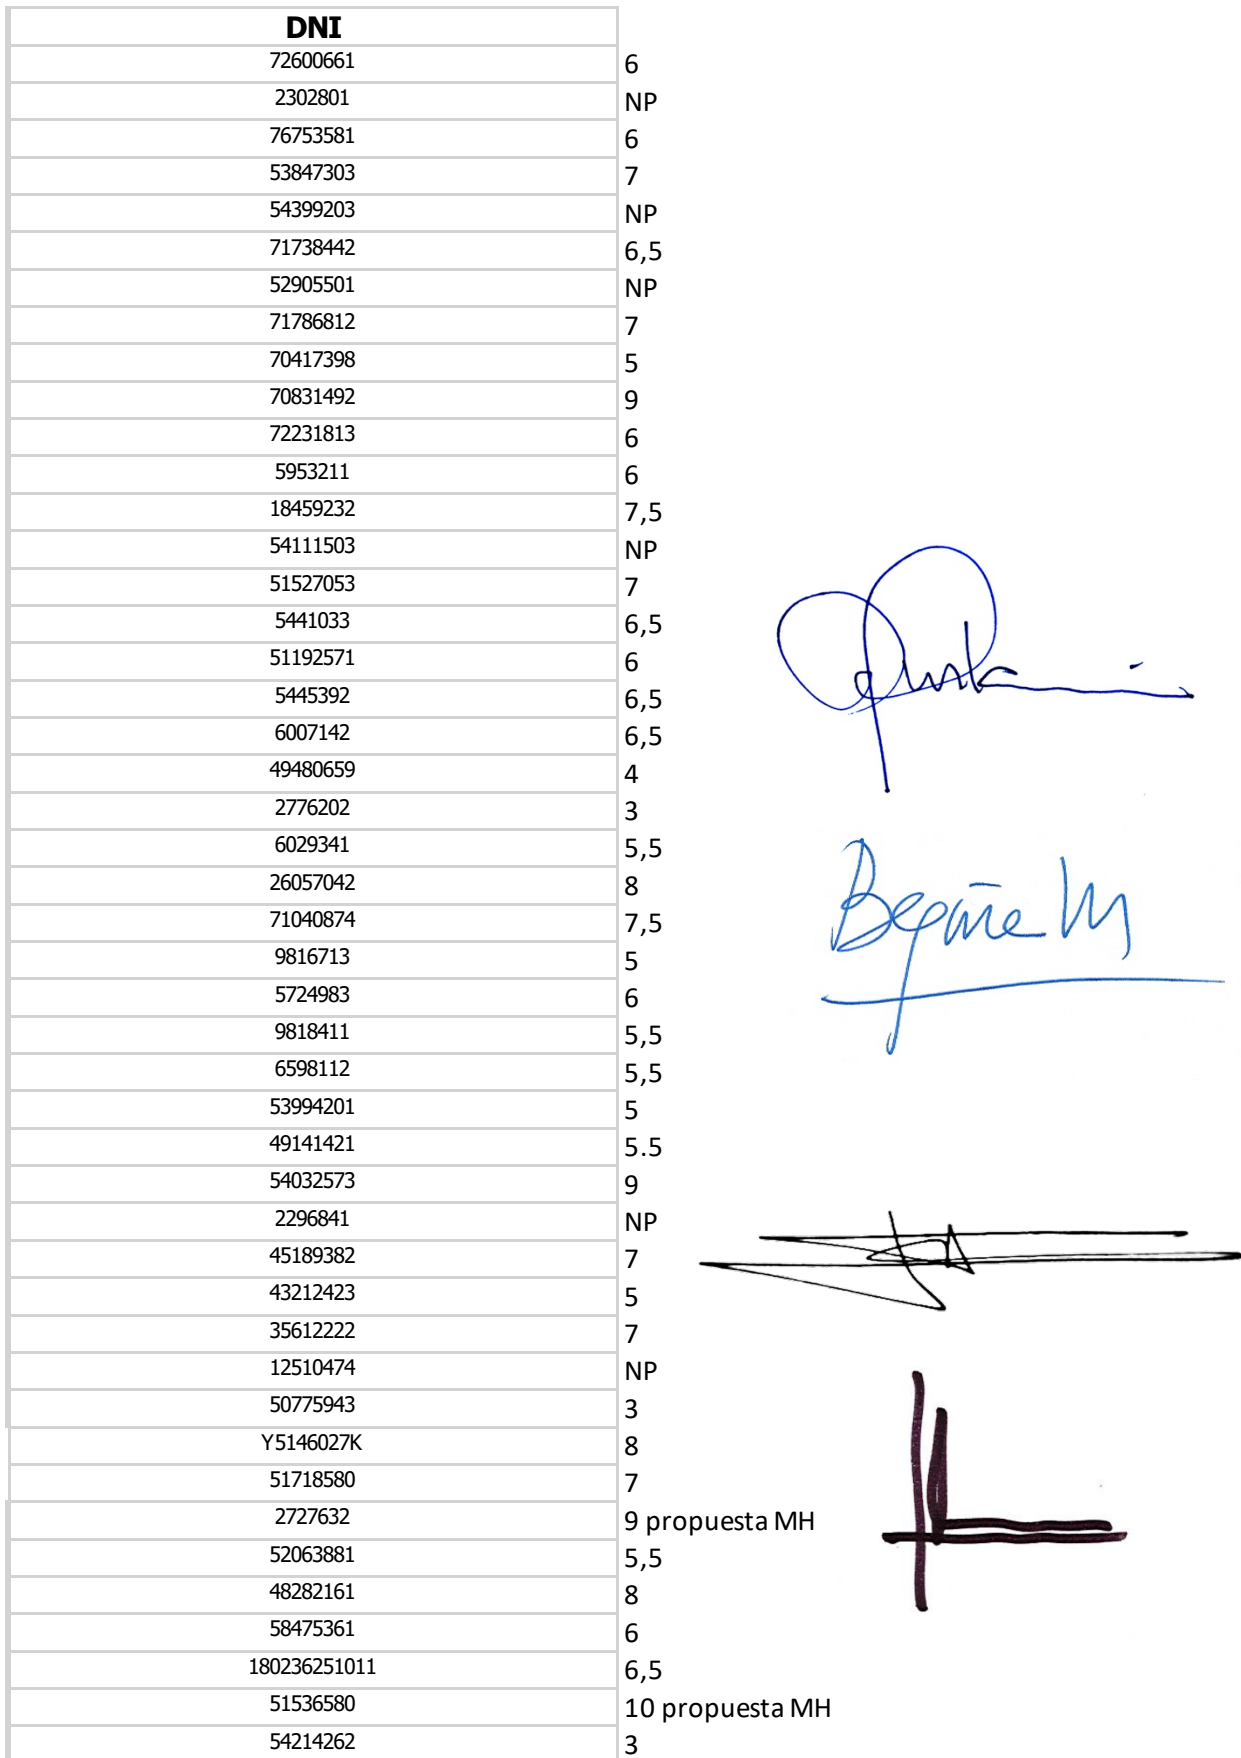 DNI
72600661 6
2302801 NP
76753581 6
53847303 7
54399203 NP
71738442 6,5
52905501 NP
71786812 7
70417398 5
70831492 9
72231813 6
5953211 6
18459232 7,5
54111503 NP
51527053 7
5441033 6,5
51192571 6
5445392 6,5
6007142 6,5
49480659 4
2776202 3
6029341 5,5
26057042 8
71040874 7,5
9816713 5
5724983 6
9818411 5,5
6598112 5,5
53994201 5
49141421 5.5
54032573 9
2296841 NP
45189382 7
43212423 5
35612222 7
12510474 NP
50775943 3
Y5146027K 8
51718580 7
2727632 9 propuesta MH
52063881 5,5
48282161 8
58475361 6
180236251011 6,5
51536580 10 propuesta MH
54214262 3